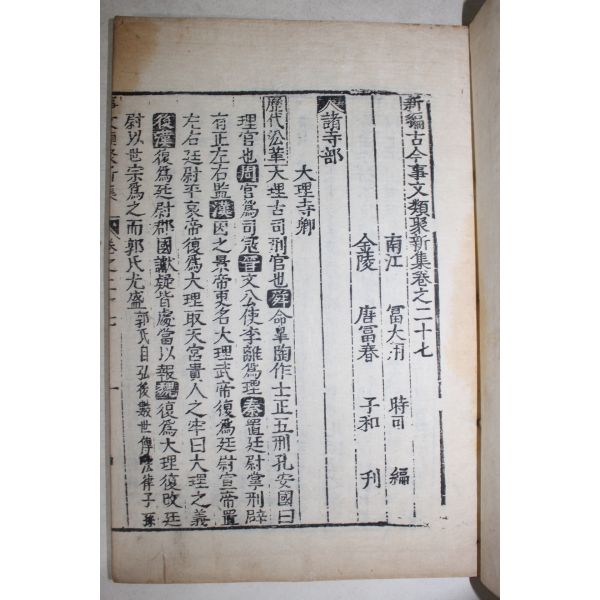 新編古今事文類聚新集卷之二十七
南江 冨大用 時可 編
金陵 唐冨春 子和 刊
諸寺部
大理寺卿
歷代沿革大理古司刑官也舜命皐陶作士正五刑孔安國曰
理官也周官爲司寇晉文公使李離爲理秦置廷尉掌刑辟
有正左右監漢因之景帝更名大理武帝復爲廷尉宣帝置
左右廷尉平哀帝復爲大理取天官貴人之牢曰大理之義
後漢復爲廷尉郡國讞疑皆處當以報魏復爲大理復改廷
尉以世宗爲之而郭氏尤盛郭氏自弘後數世傳法律子孫
事文類聚新集 卷之二十七 一